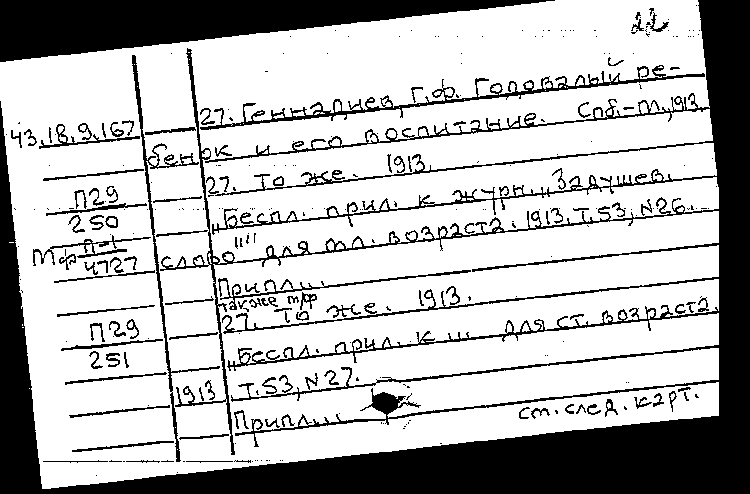 22
27. Геннадиев, Г.Ф. Годовалый ре-
43.18.9.167
бенок и его воспитание. Спб.-М., 1913.
27. То же. 1913.
П29
250
„Беспл. прил. к журн. „Задушев.
Мф П-1
4727
слово"" для мл. возраста. 1913. Т.53, N26.
Припл...
также м/ф
27. То же. 1913.
П29
251
„Беспл. прил. к ... для ст. возраста.
1913. Т.53, N27.
Припл...
см. след. карт.